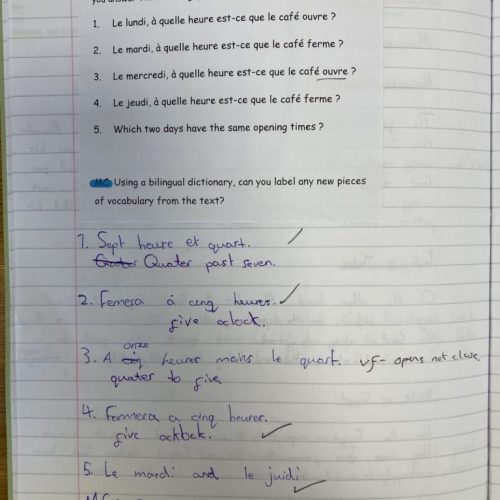 1. Le lundi, à quelle heure est-ce que le café ouvre ?
2. Le mardi, à quelle heure est-ce que le café ferme ?
3. Le mercredi, à quelle heure est-ce que le café ouvre ?
4. Le jeudi, à quelle heure est-ce que le café ferme ?
5. Which two days have the same opening times ?
MC Using a bilingual dictionary, can you label any new pieces
of vocabulary from the text?
1. Sept heure et quart.
Quater past seven.
2. Femera á cenq heures.
five oclock.
onze
3. A heures mains le quart. vf- opens not close
quates to five
4. Fermera a cinq heures.
five
5. Le mardi and le juidi